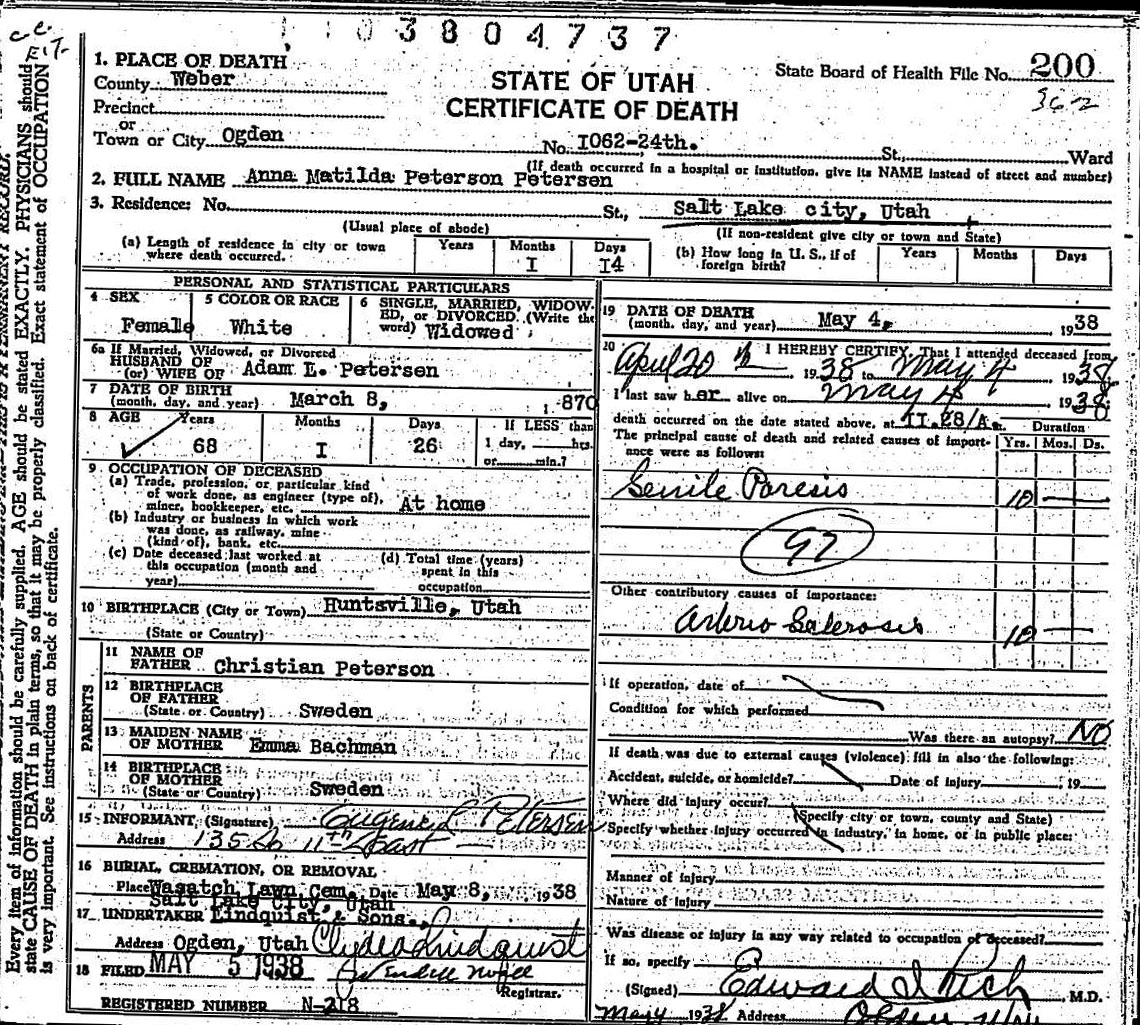 C.C.
1 1 0 3 8 0 4 7 3 7
1. PLACE OF DEATH
County Weber
Precinct
or
Town or City Ogden
STATE OF UTAH
CERTIFICATE OF DEATH
State Board of Health File No. 200
362
No. I062-24th. St., Ward
(If death occurred in a hospital or institution, give its NAME instead of street and number)
2. FULL NAME Anna Matilda Peterson Petersen
3. Residence: No. St., Salt Lake city, Utah
(Usual place of abode) (If non-resident give city or town and State)
(a) Length of residence in city or town where death occurred. Years Months I Days I4
(b) How long in U. S., if of foreign birth? Years Months Days
PERSONAL AND STATISTICAL PARTICULARS
4 SEX Female
5 COLOR OR RACE White
6 SINGLE, MARRIED, WIDOWED, or DIVORCED. (Write the word) Widowed
6a If Married, Widowed, or Divorced
HUSBAND OF
(or) WIFE OF Adam E. Petersen
7 DATE OF BIRTH
(month, day, and year) March 8, 1870
8 AGE Years 68 Months I Days 26 If LESS than
1 day, hrs.
or min.?
9 OCCUPATION OF DECEASED
(a) Trade, profession, or particular kind
of work done, as engineer (type of),
miner, bookkeeper, etc. At home
(b) Industry or business in which work
was done, as railway, mine
(kind of), bank, etc.
(c) Date deceased last worked at
this occupation (month and
year)
(d) Total time (years)
spent in this
occupation
10 BIRTHPLACE (City or Town) Huntsville, Utah
(State or Country)
PARENTS
11 NAME OF
FATHER Christian Peterson
12 BIRTHPLACE
OF FATHER
(State or Country) Sweden
13 MAIDEN NAME
OF MOTHER Emma Bachman
14 BIRTHPLACE
OF MOTHER
(State or Country) Sweden
15 INFORMANT, (Signature) Eugene L Petersen
Address 1356 11th East
16 BURIAL, CREMATION, OR REMOVAL
Place Wasatch Lawn Cem. Date May 8, 1938
Salt Lake City, Utah
17 UNDERTAKER Lindquist & Sons.,
Address Ogden, Utah Clyde Lindquist
18 FILED MAY 5 1938
Registrar.
REGISTERED NUMBER N-218
19 DATE OF DEATH
(month, day, and year) May 4, 1938
20 I HEREBY CERTIFY, That I attended deceased from
April 20th 1938 to May 4, 1938
I last saw her alive on May 4 1938
death occurred on the date stated above, at II.28/A m.
Duration
The principal cause of death and related causes of importance were as follows: Yrs. Mos. Ds.
Senile Paresis 10
97
Other contributory causes of importance:
Arterio Sclerosis 10
If operation, date of
Condition for which performed
Was there an autopsy? NO
If death was due to external causes (violence) fill in also the following:
Accident, suicide, or homicide? Date of injury , 19
Where did injury occur?
(Specify city or town, county and State)
Specify whether injury occurred in industry, in home, or in public place:
Manner of injury
Nature of injury
Was disease or injury in any way related to occupation of deceased?
If so, specify
(Signed) Edward I Rich M.D.
May 4 1938 Address Ogden Utah
Every item of information should be carefully supplied. AGE should be stated EXACTLY. PHYSICIANS should
state CAUSE OF DEATH in plain terms, so that it may be properly classified. Exact statement of OCCUPATION
is very important. See instructions on back of certificate.